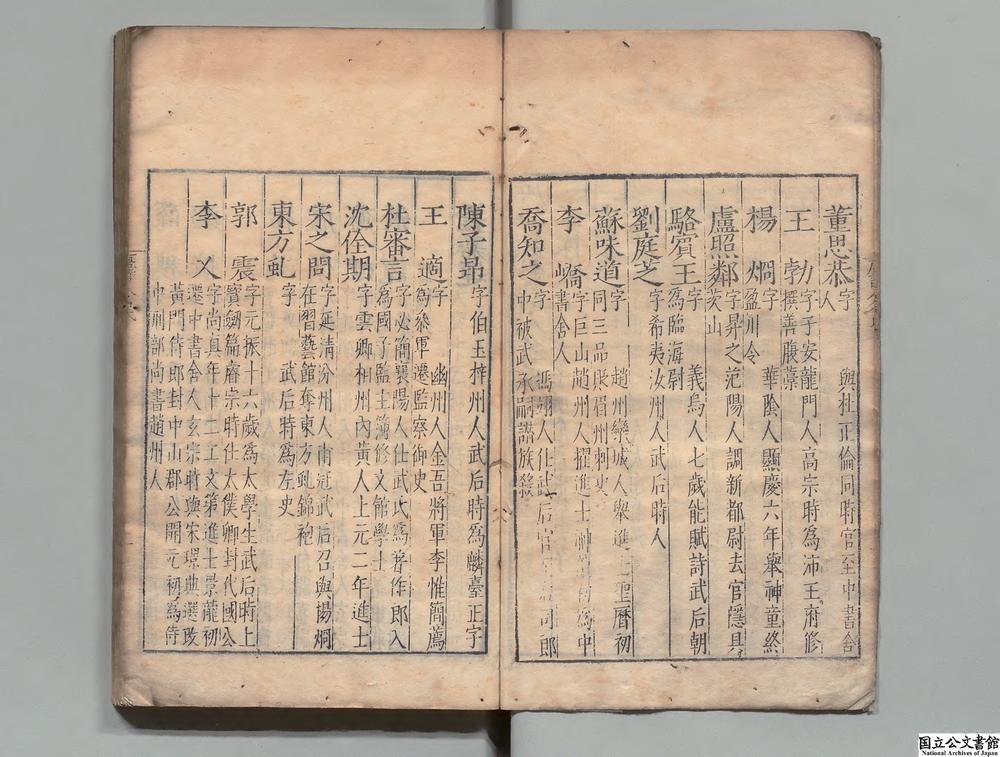 董思恭 字 與杜正倫同時官至中書舍
人
王勃 字子安龍門人高宗時為沛王府修
撰善腹藁
楊烱 字 華陰人顯慶六年舉神童終
盈川令
盧照鄰 字昇之范陽人調新都尉去官隱具
茨山
駱賓王 字 義烏人七歲能賦詩武后朝
為臨海尉
劉庭芝 字希夷汝州人武后時人
蘇味道 字 趙州欒城人舉進士聖曆初
同三品貶眉州刺史
李嶠 字巨山趙州人擢進士神 初為中
書舍人
喬知之 字 馮翊人仕武后官 司郎
中被武承嗣譖族殺
陳子昂 字伯玉梓州人武后時為麟臺正字
王適 字 幽州人金吾將軍李惟簡薦
為叅軍遷監察御史
杜審言 字必簡襄陽人仕武氏為著作郎入
為國子監主簿修文館學士
沈佺期 字雲卿相州内黄人上元二年進士
宋之問 字延清汾州人甫冠武后召與楊烱
在習藝館奪東方虬錦袍
東方虬 字 武后時為左史
郭震 字元振十六歲為太學生武后時上
寳劒篇睿宗時仕太僕卿封代國公
李乂 字尚真年十二工文第進士景龍初
遷中書舍人玄宗時與宋璟典選改
黄門侍郎封中山郡公開元初為侍
中刑部尚書趙州人
国立公文書館
National Archives of Japan